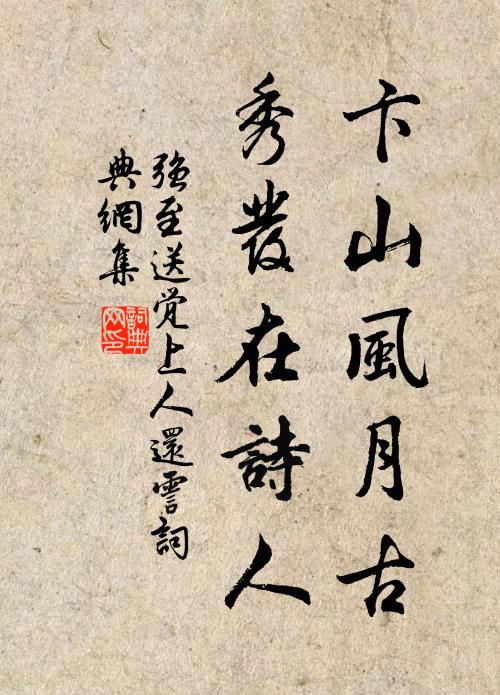 卞山風月古
秀發在詩人
強至送覚上人還霅詞
典網集
詞典网印